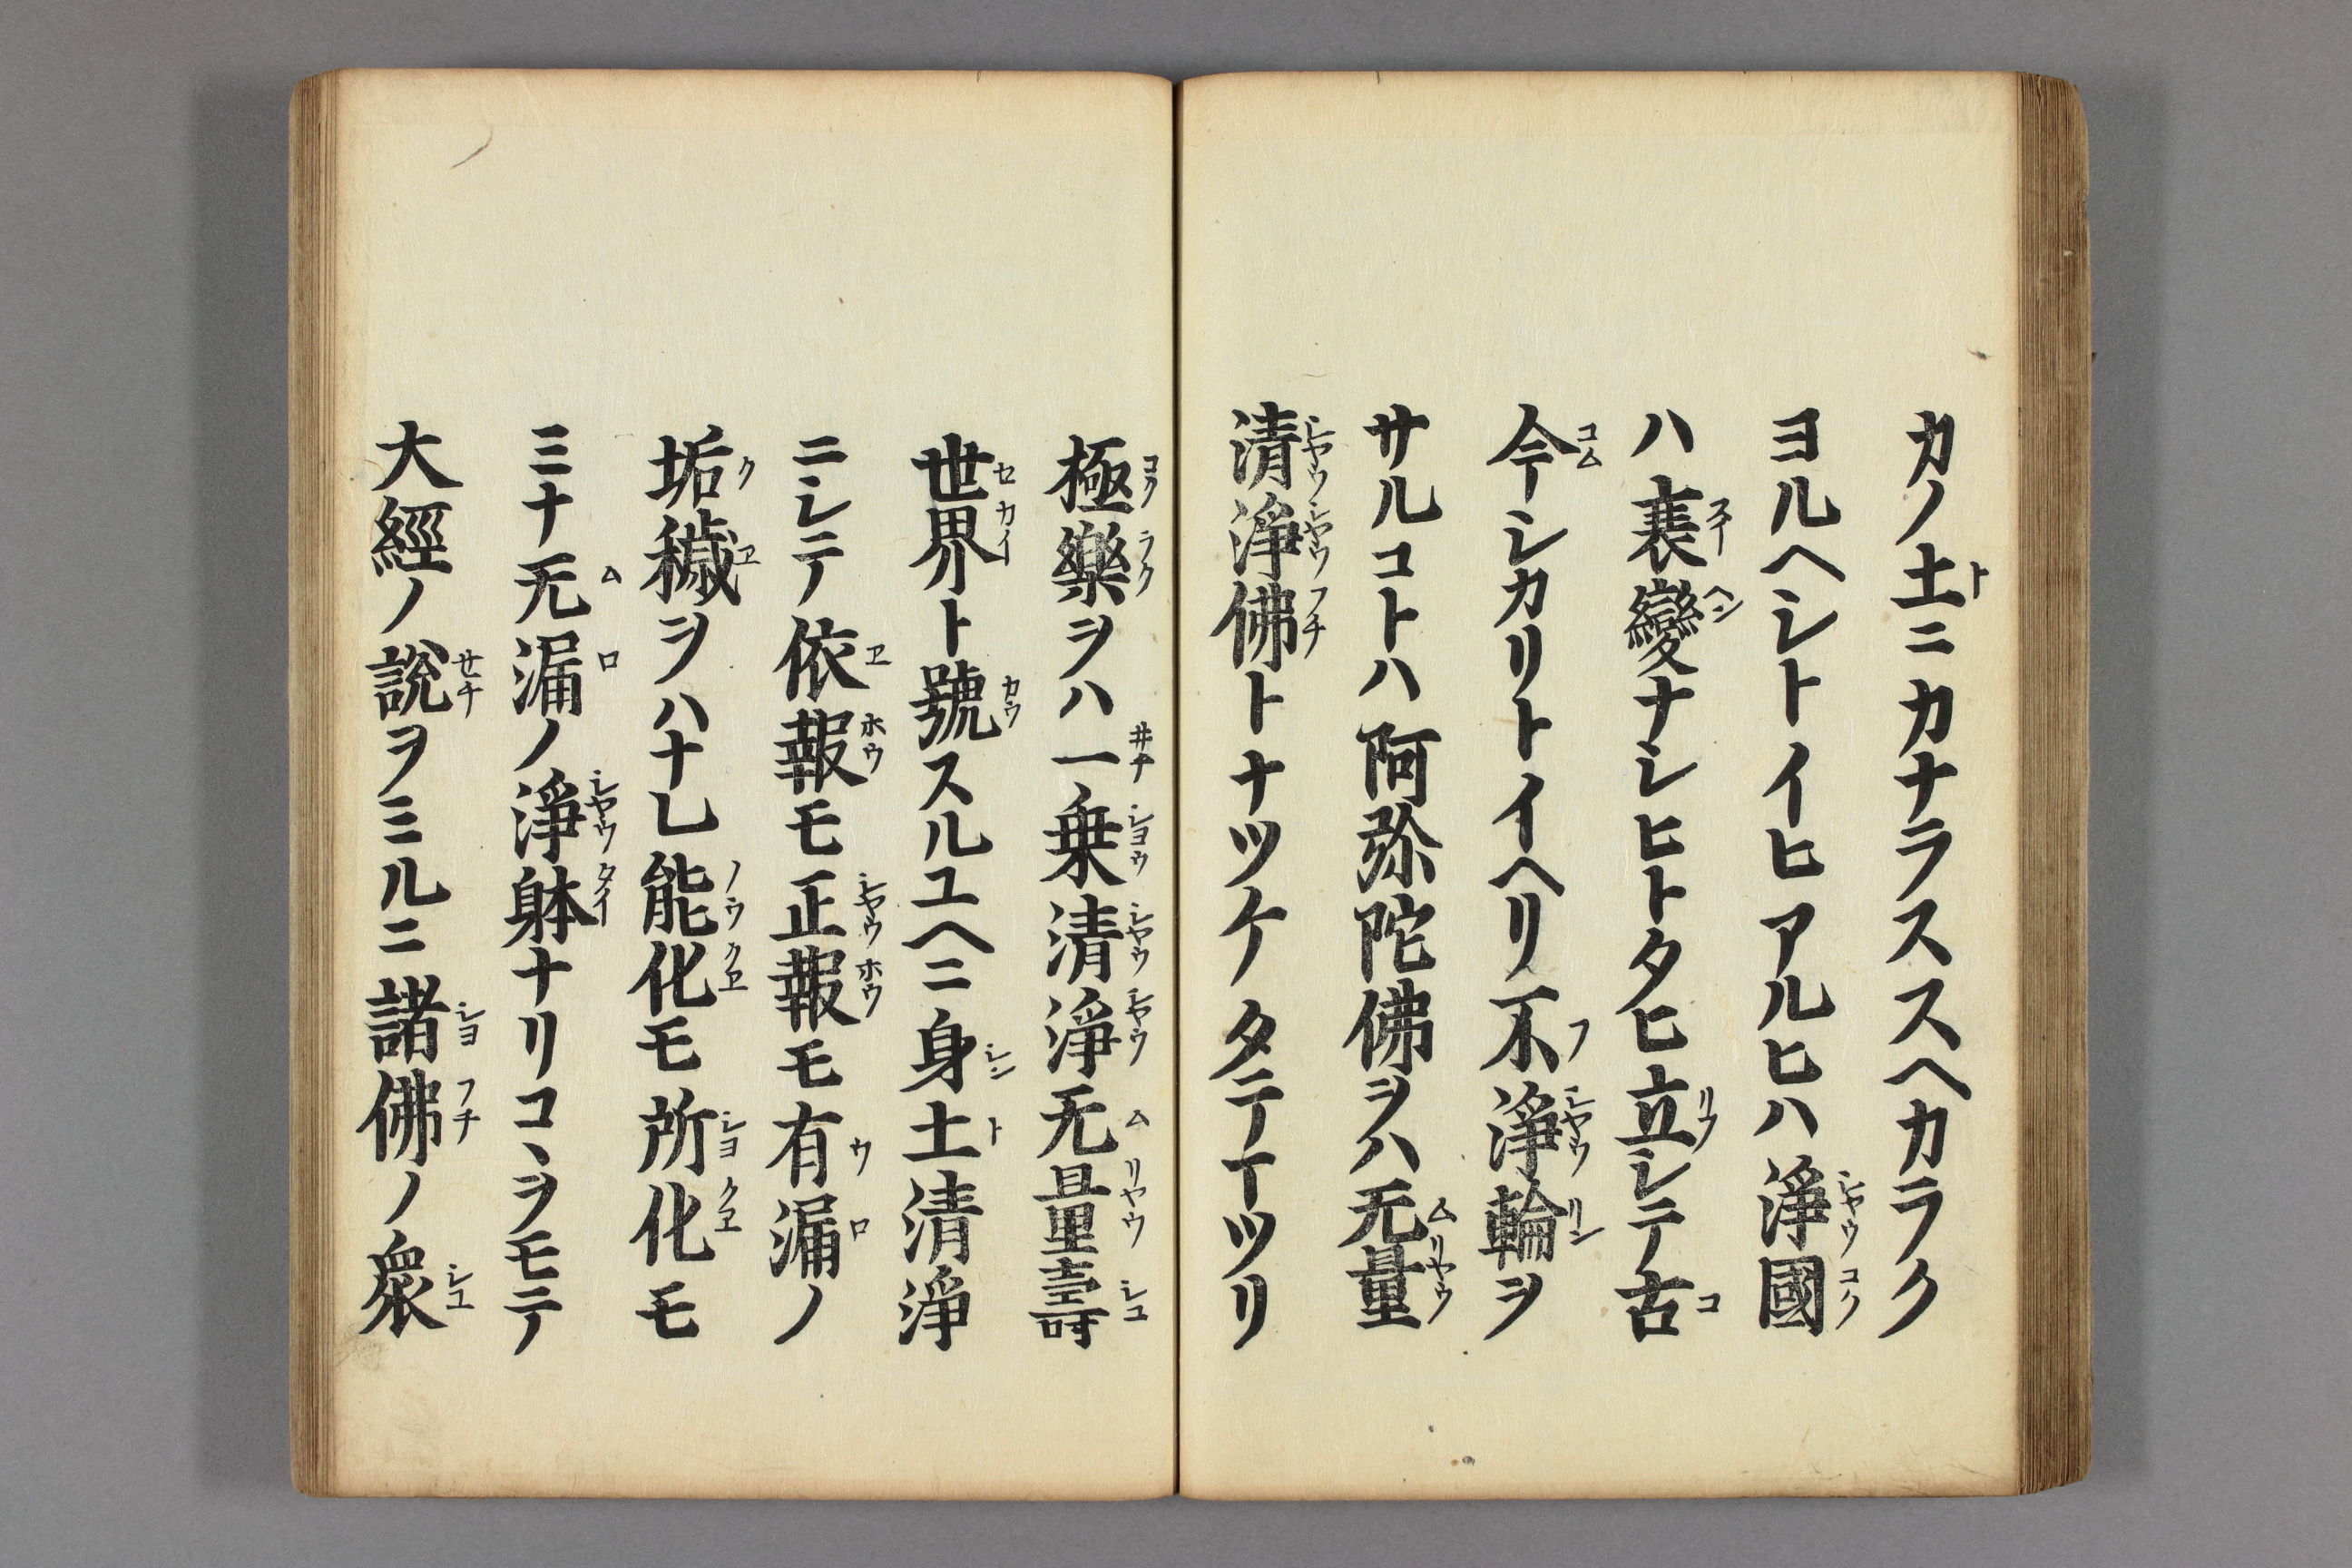 カノ土ニカナラススヘカラク
ヨルヘシトイヒアルヒハ淨國
ハ衰變ナシヒトタヒ立シテ古
今シカリトイヘリ不淨輪ヲ
サルコトハ阿弥陀佛ヲハ无量
清淨佛トナツケタテマツリ
極樂ヲハ一乗清淨无量壽
世界ト號スルユヘニ身土清淨
ニシテ依報モ正報モ有漏ノ
垢穢ヲハナレ能化モ所化モ
ミナ无漏ノ淨躰ナリコヽヲモテ
大經ノ說ヲミルニ諸佛ノ衆